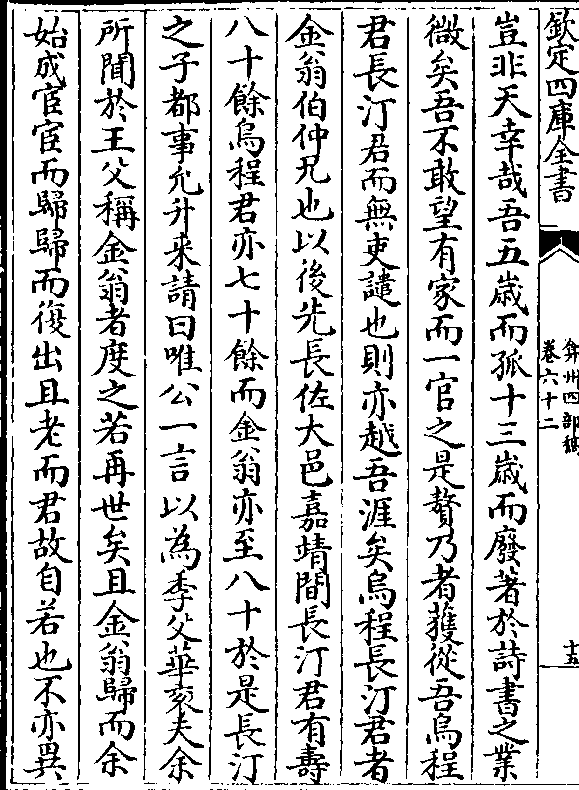 欽定四庫全書
弇州四部稿
卷六十二
十五
豈非天幸哉吾五嵗而孤十三嵗而廢著於詩書之業
微矣吾不敢望有家而一官之是贅乃者獲從吾烏程
君長汀君而無吏譴也則亦越吾涯矣烏程長汀君者
金翁伯仲兄也以後先長佐大邑嘉靖間長汀君有壽
八十餘烏程君亦七十餘而金翁亦至八十於是長汀
之子都事允升来請曰唯公一言以為季父華衮夫余
所聞於王父稱金翁者度之若再世矣且金翁歸而余
始成宦宦而歸歸而復出且老而君故自若也不亦異